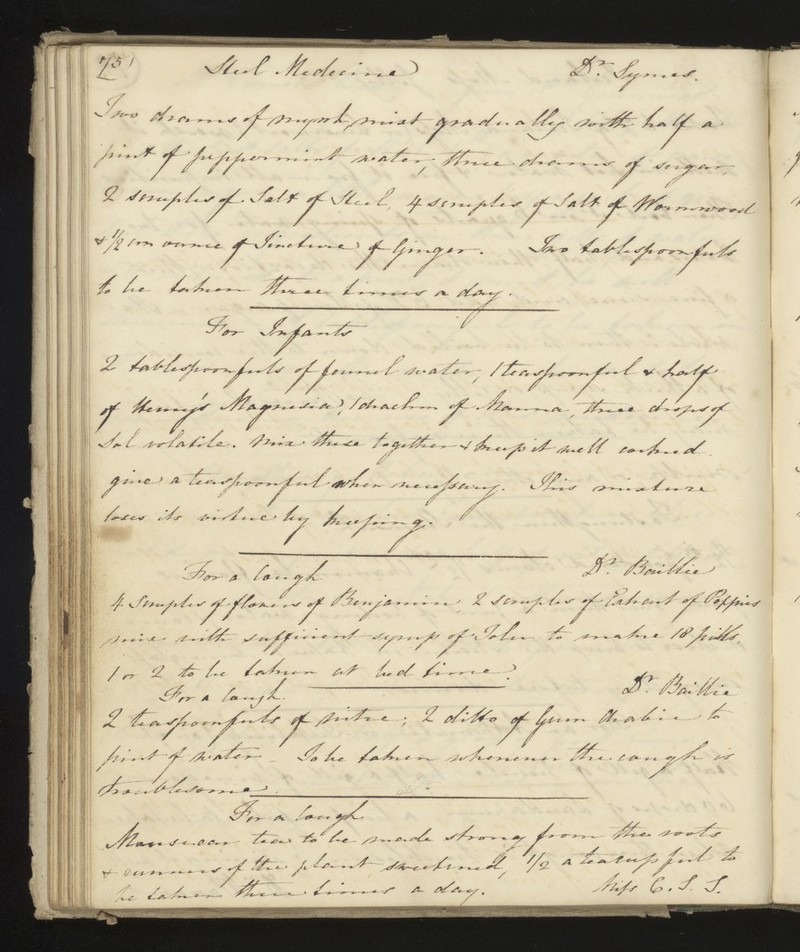 75
Steel Medicine Dr. Symes.
Two drams of myrrh, mixt gradually with half a
pint of peppermint water, three drams of sugar,
2 scruples of Salt of Steel, 4 scruples of Salt of Wormwood
& 1/2 an ounce of Tincture of Ginger. Two tablespoonfuls
to be taken three times a day.
For Infants
2 tablespoonfuls of fennel water, 1 teaspoonful & half
of Henry's Magnesia, 1 drachm of Manna, three drops of
Sal volatile. Mix these together & keep it well corked
give a teaspoonful when necessary. This mixture
loses its virtue by keeping.
For a Cough Dr. Baillie
4 Scruples of flowers of Benjamin, 2 scruples of Extract of Poppies
mix with sufficient syrup of Tolu to make 18 pills.
1 or 2 to be taken at bed time.
For a Cough Dr. Baillie
2 teaspoonfuls of nitre; 2 ditto of Gum Arabic to
pint of water - To be taken whenever the cough is
troublesome.
For a Cough
Mouse ear tea to be made strong from the roots
& runners of the plant sweetened, 1/2 a teacup full to
be taken three times a day. Miss C. S. S.